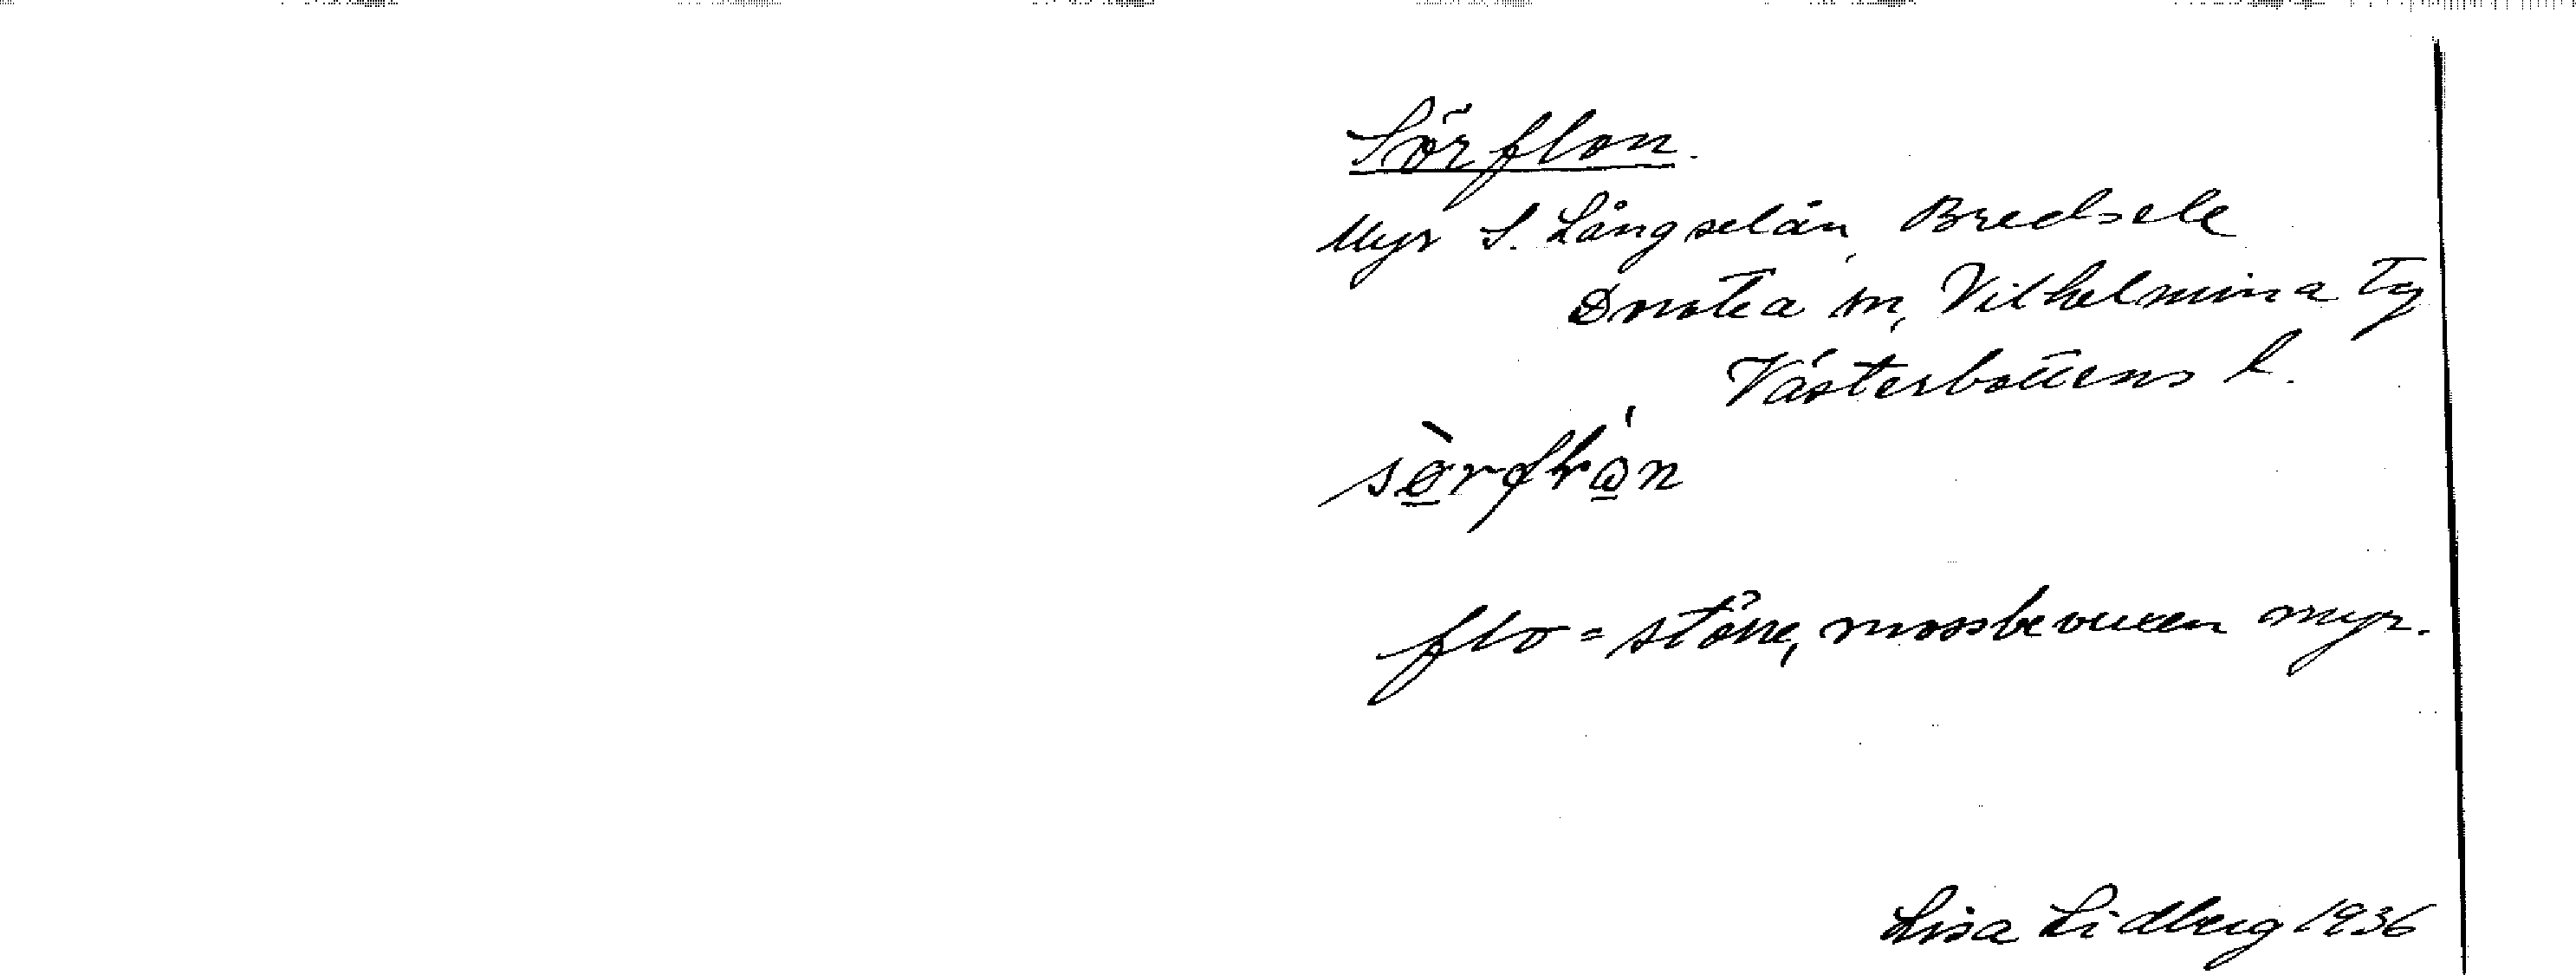 Sörflon.
Myr S. Långselån, Bredsele
Dorotea sn, Vilhelmina Tg
Västerbottens l.
sö̀rflo̱̍n
flo = större, mossbevuxen myr.
Lisa Lidberg 1936